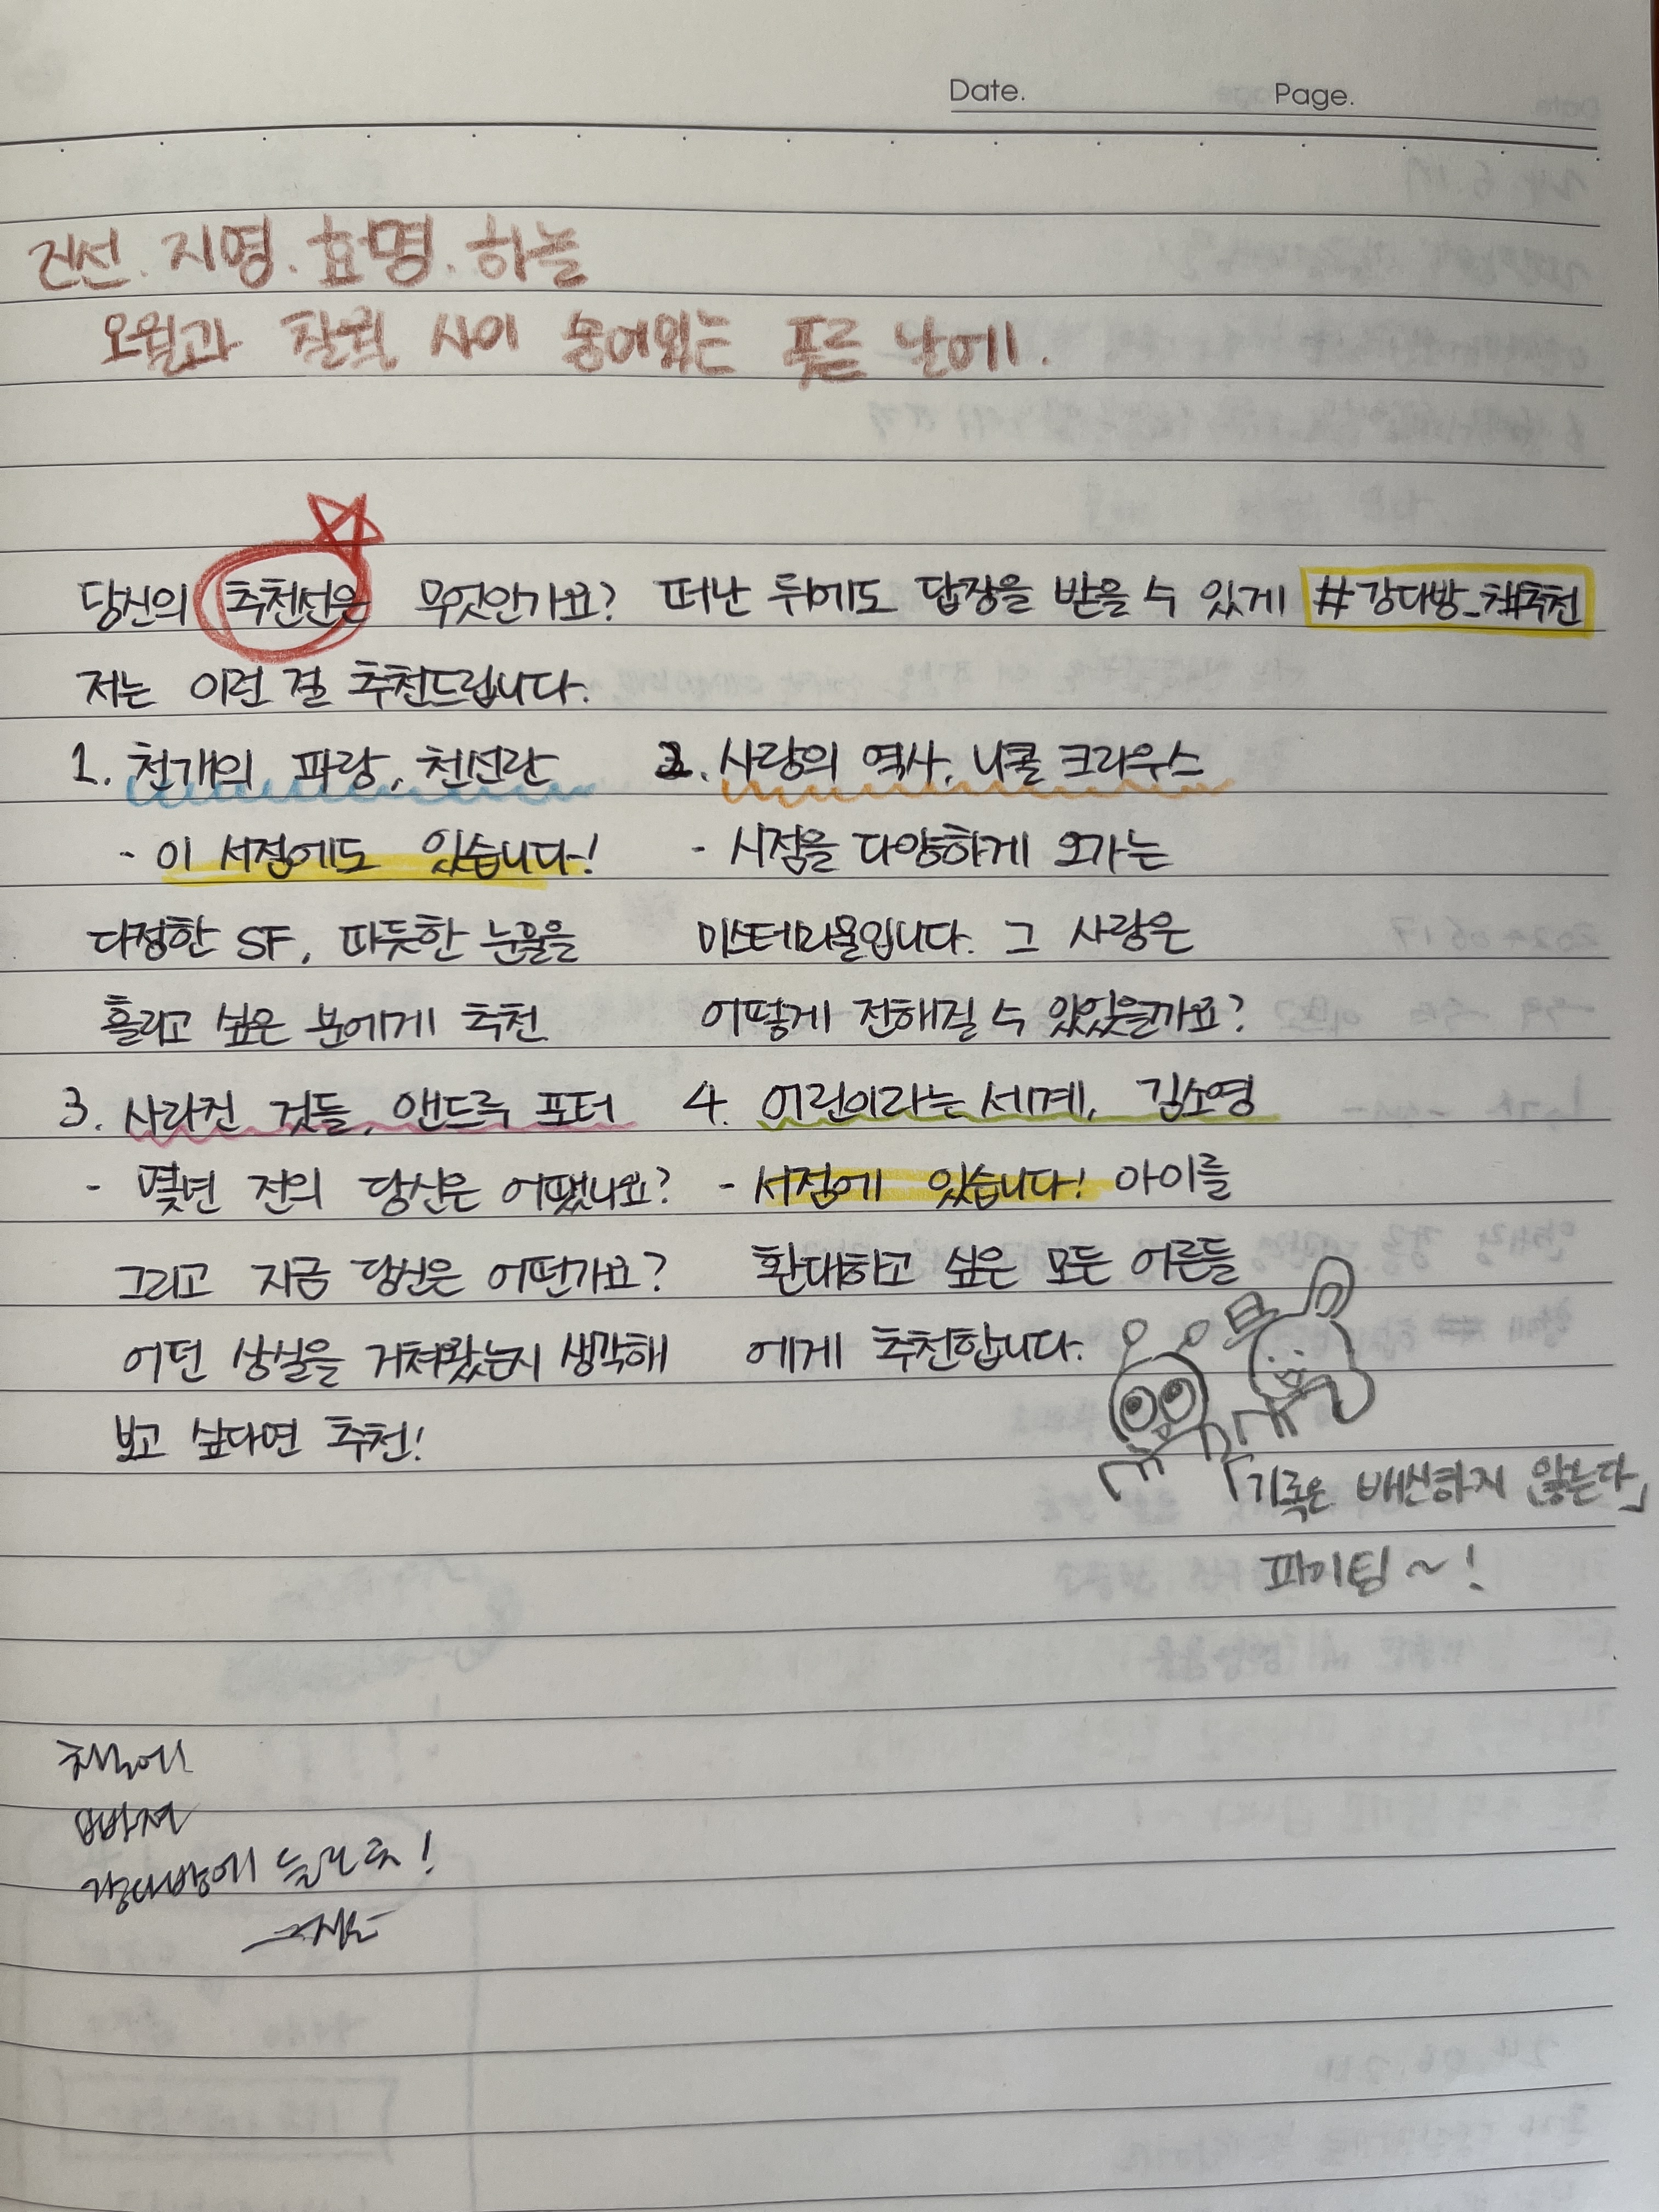 Date. Page.
진선. 지명. 효명. 하늘
오월과 칠월 사이 숨어있는 푸른 날에.
당신의 추천선은 무엇인가요? 떠난 뒤에도 답장을 받을 수 있게 #강다방_책추천
저는 이런 걸 추천드립니다.
1. 천개의 파랑, 천선란
- 이 서점에도 있습니다!
다정한 SF, 따듯한 눈물을
흘리고 싶은 분에게 추천
2. 사랑의 역사, 니콜 크라우스
- 시점을 다양하게 오가는
미스테리물입니다. 그 사랑은
어떻게 전해질 수 있었을까요?
3. 사라진 것들, 앤드루 포터
- 몇년 전의 당신은 어땠나요?
그리고 지금 당신은 어떤가요?
어떤 상실을 거쳐왔는지 생각해
보고 싶다면 추천!
4. 어린이라는 세계, 김소영
- 서점에 있습니다! 아이를
환대하고 싶은 모든 어른들
에게 추천합니다.
「기록은 배신하지 않는다」
파이팅~!
빠져
강다방에